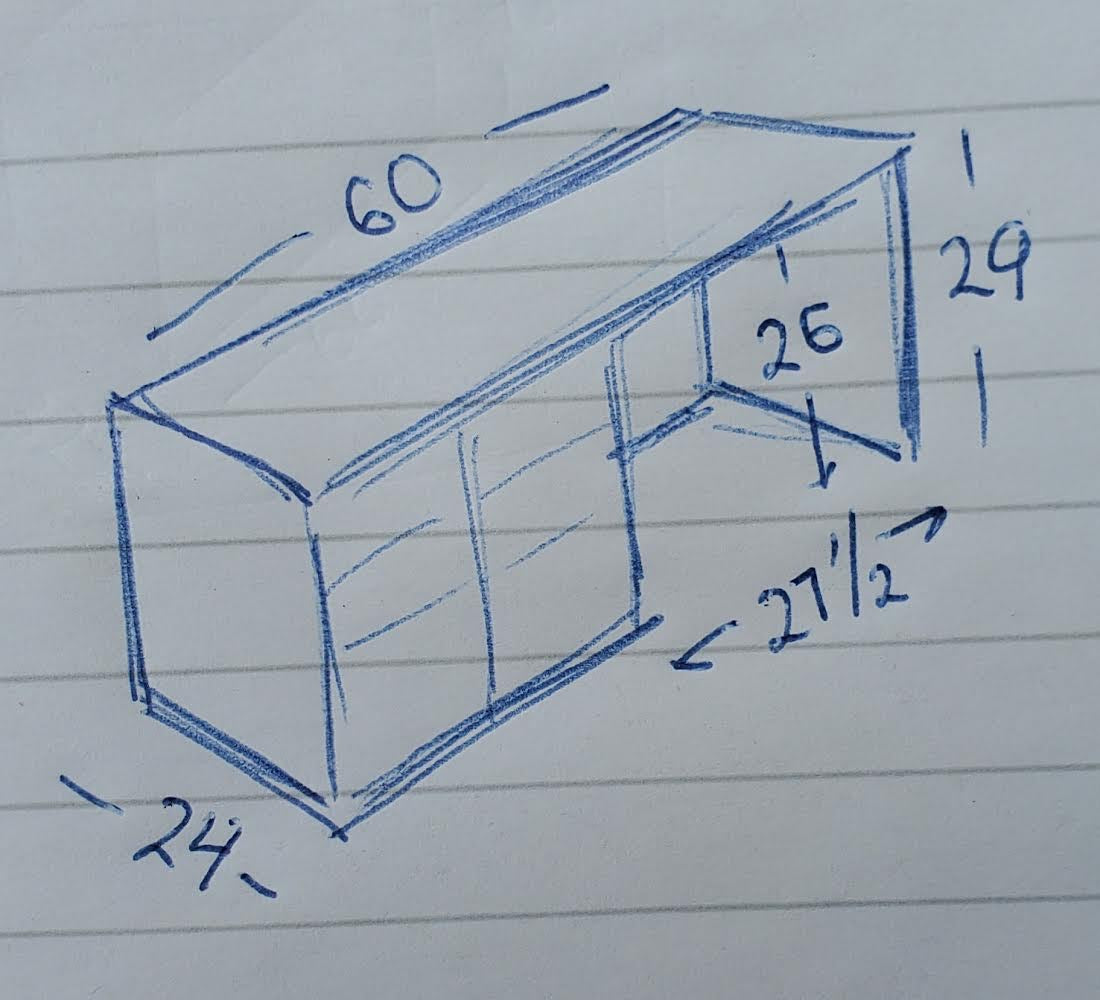 60
29
26
27 1/2
24